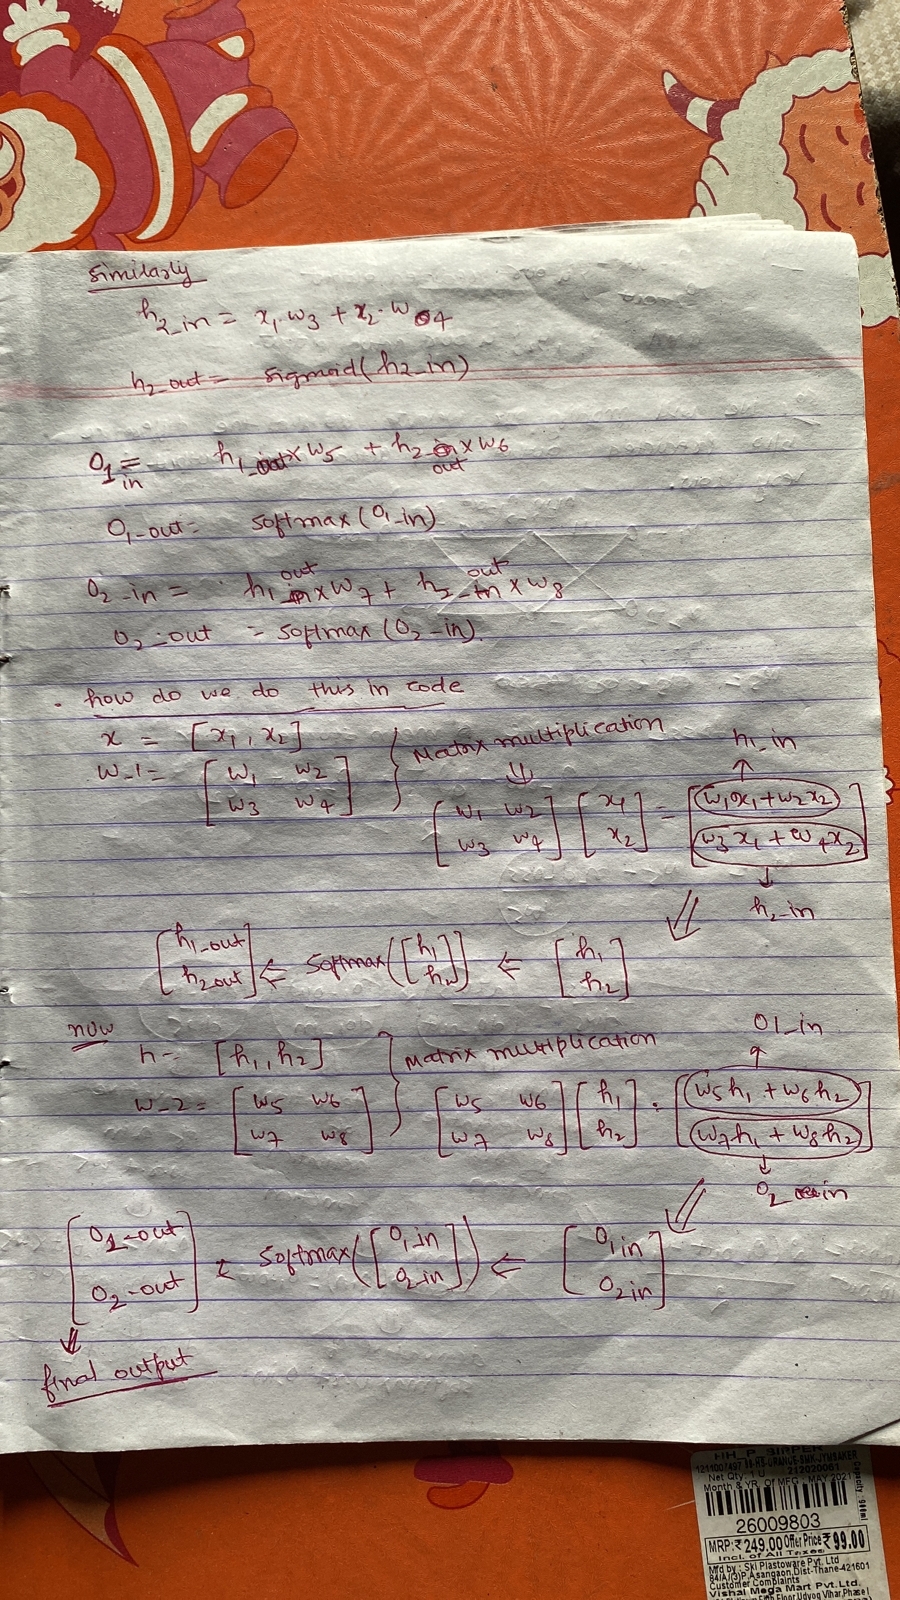 Similarly
h2_in = x1.w3 + x2.w4
h2_out = sigmoid(h2_in)
O1_in = h1_out x w5 + h2_out x w6
O1_out = softmax(O1_in)
O2_in = h1_out x w7 + h2_out x w8
O2_out = softmax(O2_in).
. how do we do this in code
x = [x1, x2]
w_1 = [w1 w2
w3 w4]
} Matrix multiplication
⇓
[w1 w2
w3 w4] [x1
x2] = [w1x1 + w2x2
w3x1 + w4x2]
h1_in
h2_in
[h1_out
h2out] ⇐ softmax([h1
h2]) ⇐ [h1
h2]
now
h = [h1, h2]
w_2 = [w5 w6
w7 w8]
} Matrix multiplication
[w5 w6
w7 w8] [h1
h2] = [w5h1 + w6h2
w7h1 + w8h2]
O1_in
O2 in
[O1_out
O2_out] ⇐ softmax([O1_in
O2_in]) ⇐ [O1in
O2in]
⇓
final output
HH_P_SIPPER
Net Qty: 1 U
Month & YR. Of MFG : MAY 2021
Capacity : 900ml
26009803
MRP:₹249.00 Offer Price ₹99.00
Incl. of All Taxes
Mfd by : Ski Plastoware Pvt. Ltd
84/A/(3)P,Asangaon,Dist-Thane-421601
Customer Complaints
Vishal Mega Mart Pvt.Ltd.
Floor,Udyog Vihar,Phase I